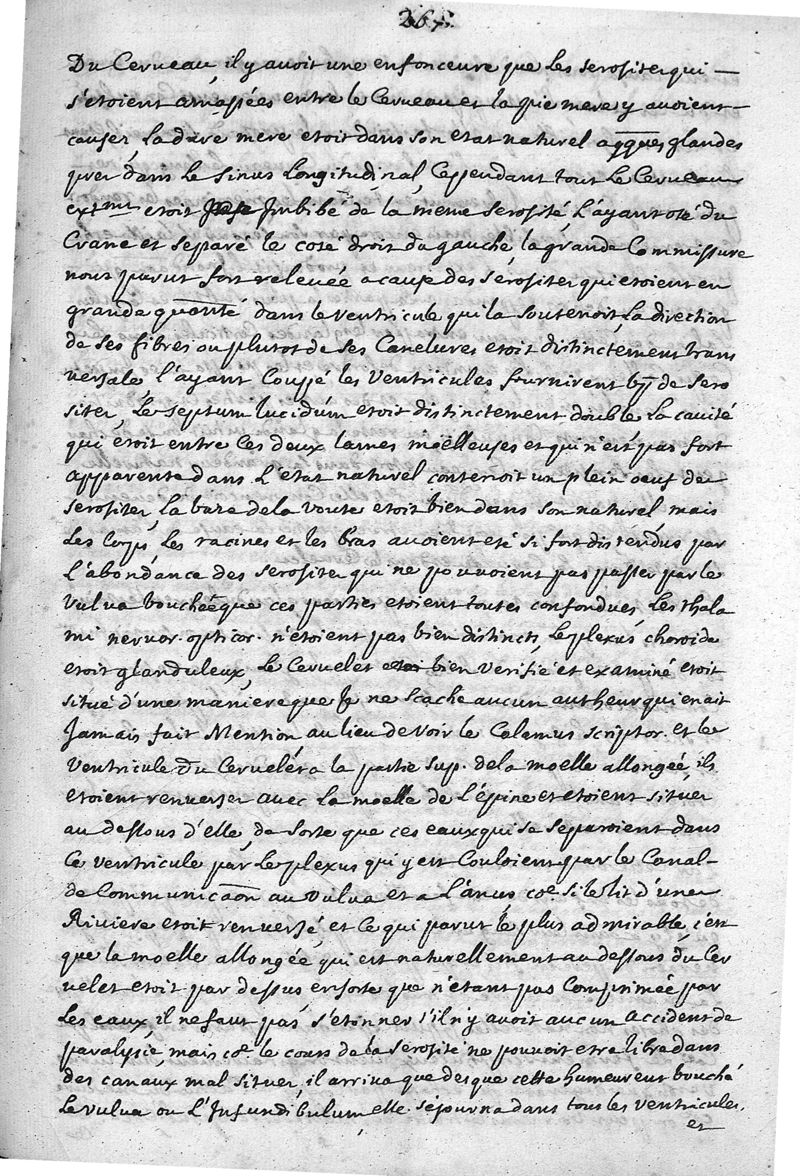 267
Du Cerveau, il y avoit une enfonceure que les serositez qui —
s'etoient amassées entre le Cerveau et la pie mere y avoient —
causer, la dure mere etoit dans son etat naturel a qques glandes
prez dans le sinus Longitudinal, Cependant tout le Cerveau
ext.nt etoit Imbibé de la meme serosité, L'ayant oté du
Crane et separé le costé droit du gauche, la grande Commissure
nous parut fort relevée a cause des serositez qui etoient en
grande quantité dans le ventricule qui la soutenoit, La direction
de ses fibres ou plutot de ses Canelures etoit distinctement trans
versale l'ayant Couppé les Ventricules fournirent bp de sero
sitez, Le septum lucidum etoit distinctement double La cavité
qui etoit entre ces deux lames moëlleuses et qui n'est pas fort
apparente dans L'etat naturel contenoit un plein oeuf de
serositez, la baze de la voute etoit bien dans son naturel mais
Les Corps, Les racines et les bras avoient eté si fort distendus par
L'abondance des serositez qui ne pouvoient pas passer par le
vulva bouchée que ces parties etoient toutes confondues, Les thala
mi nervor. opticor. n'etoient pas bien distincts, Le plexus choroide
etoit glanduleux, Le Cervelet bien verifié et examiné etoit
situé d'une maniere que Je ne scache aucun autheur qui en ait
Jamais fait Mention au lieu de voir le Calamus scriptor. et le
Ventricule du Cervelét a la partie sup. de la moelle allongée, ils
etoient renverser avec La moelle de L'épine et etoient situer
au dessous d'elle, de sorte que ces eaux qui se separoient dans
Ce ventricule par Le plexus qui y est Couloient par le Canal-
de Communicaõn au vulva et a L'anus cõe. si le lit d'une
Riviere etoit renversé, et Ce qui parut le plus admirable, c'est
que la moelle allongée, qui est naturellement au dessous du Cer
velet etoit par dessus ensorte que n'etant pas Comprimée par
Les eaux, il ne faut pas s'etonner s'il n'y avoit aucun accident de
paralysie, mais cõe. le cours de la serosité ne pouvoit etre libre dans
des canaux mal situer, il arriva que des que cette humeur eut bouché
Le vulva ou L'Infundibulum elle séjourna dans tous les ventricules,
et